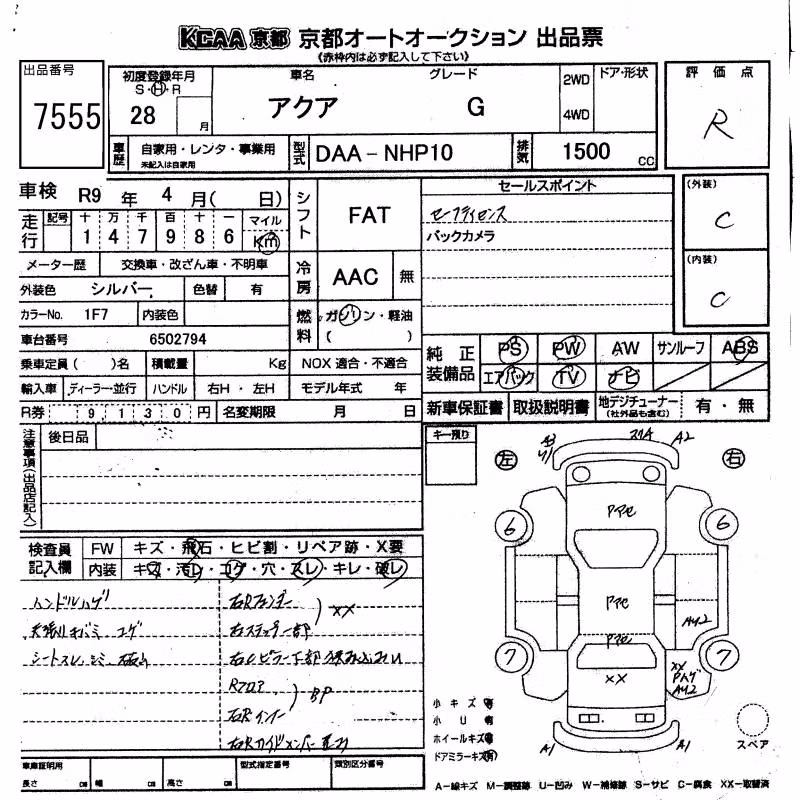 KCAA 京都 京都オートオークション 出品票
《赤枠内は必ず記入して下さい》
出品番号
7555
初度登録年月
S・H・R
28
月
車名
アクア
グレード
G
2WD
4WD
ドア・形状
評価点
R
車歴
自家用・レンタ・事業用
未記入は自家用
型式
DAA-NHP10
排気
1500 CC
車検 R9 年 4 月( 日)
走行
記号 十 万 千 百 十 一
1 4 7 9 8 6
マイル
Km
シフト
FAT
セールスポイント
セーフティセンス
バックカメラ
(外装)
C
(内装)
C
メーター歴 交換車・改ざん車・不明車
冷房
AAC
無
外装色 シルバー 色替 有
カラーNo. 1F7 内装色
燃料
ガソリン・軽油
( )
車台番号 6502794
純正装備品
PS PW AW サンルーフ ABS
エアバック TV ナビ
乗車定員( )名 積載量 Kg NOX 適合・不適合
輸入車 ディーラー・並行 ハンドル 右H・左H モデル年式 年
新車保証書 取扱説明書 地デジチューナー(社外品も含む) 有・無
R券 9 1 3 0 円 名変期限 月 日
注意事項(出品店記入)
後日品
キー預り
左
右
A2
検査員記入欄
FW キズ・飛石・ヒビ割・リペア跡・X要
内装 キズ・汚レ・コゲ・穴・スレ・キレ・破レ
ハンドルハゲ
天張りキバミ コゲ
右Rフェンダー
右ステップ一部
XX
Rフロア
右Rインナー
BP
6
6
7
7
AU2
XX
XX
Pハゲ
AU2
A1
A1
小キズ 有
小U 有
ホイールキズ 有
ドアミラーキズ(有)
スペア
車庫証明用
長さ cm 幅 cm 高さ cm
型式指定番号
類別区分番号
A-線キズ M-調整跡 U-凹み W-補修跡 S-サビ C-腐食 XX-取替済